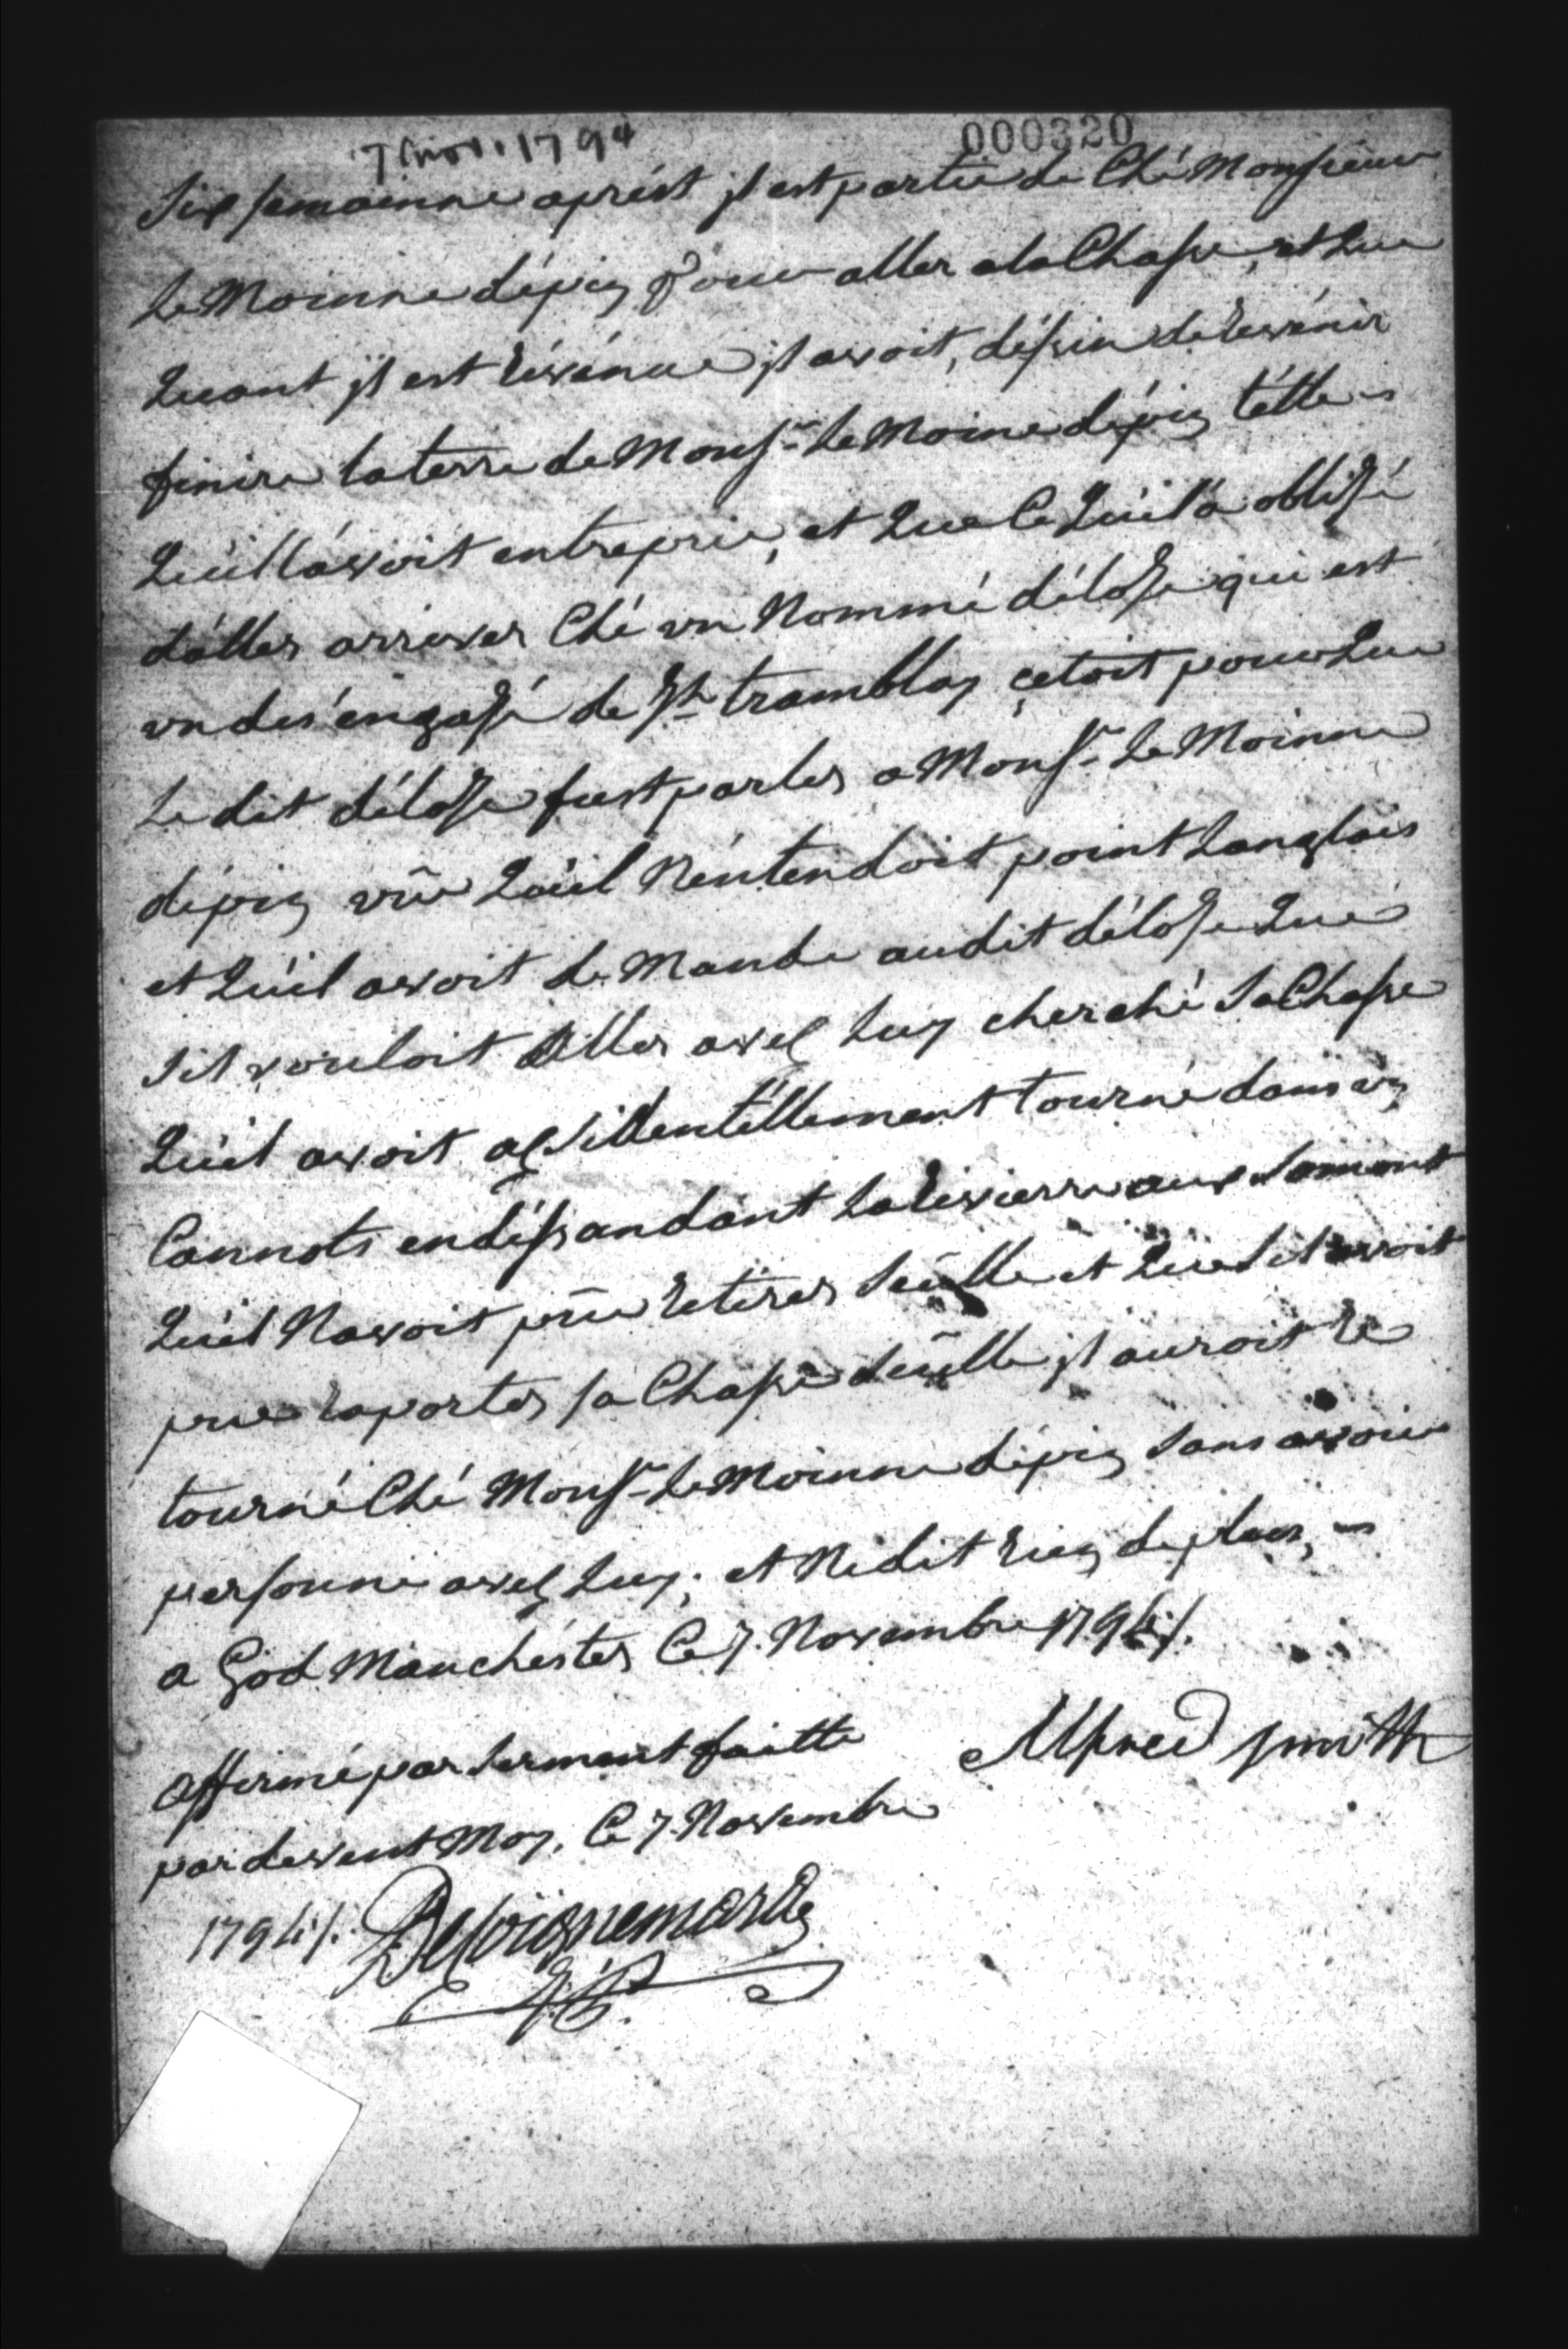 7 Nov. 1794
000320
Six semainne aprést jl est partie de Ché Monsieur
Le Moinne dépin pour aller a la Chasse, et Que
Quant jl est révénue jl avoit, déssin de Revénir
finire la terre de Monsr. Le Moine dépin télle
Quil lávoit entreprie, et Que Ce Qui la obligé
dáller arriver Ché un Nommé délôge qui est
un des éngagé de Jh tramblay cetoit pour Que
Le dit délôge fust parler a Monsr. Le Moinne
dépin vûe Quil Néntendoit point Langlais
et Quil avoit de Mande au dit délôge Que
Sil vouloit Aller avec Luy cherché Sa Chasse
Quil avoit acsillentéllement tourné dans un
Cannots en déssandant La Rivierre aux Somont
Quil Navoit pûe Retirer Seûlle et Que Sil avoit
pue raporter sa Chasse Seûlle jl auroit Re
tourné Ché Monsr. Le Moinne dépin Sans avoir
personne avec Luy, et Ne dit Rien de plus,
a God Manchéster Ce 7. Novembre 1794 ./.
Alfred smith
Affirmé par Serment faitte
par devent Moy. Ce 7 Novembre
1794 ./. Deloignemarde
J:P.